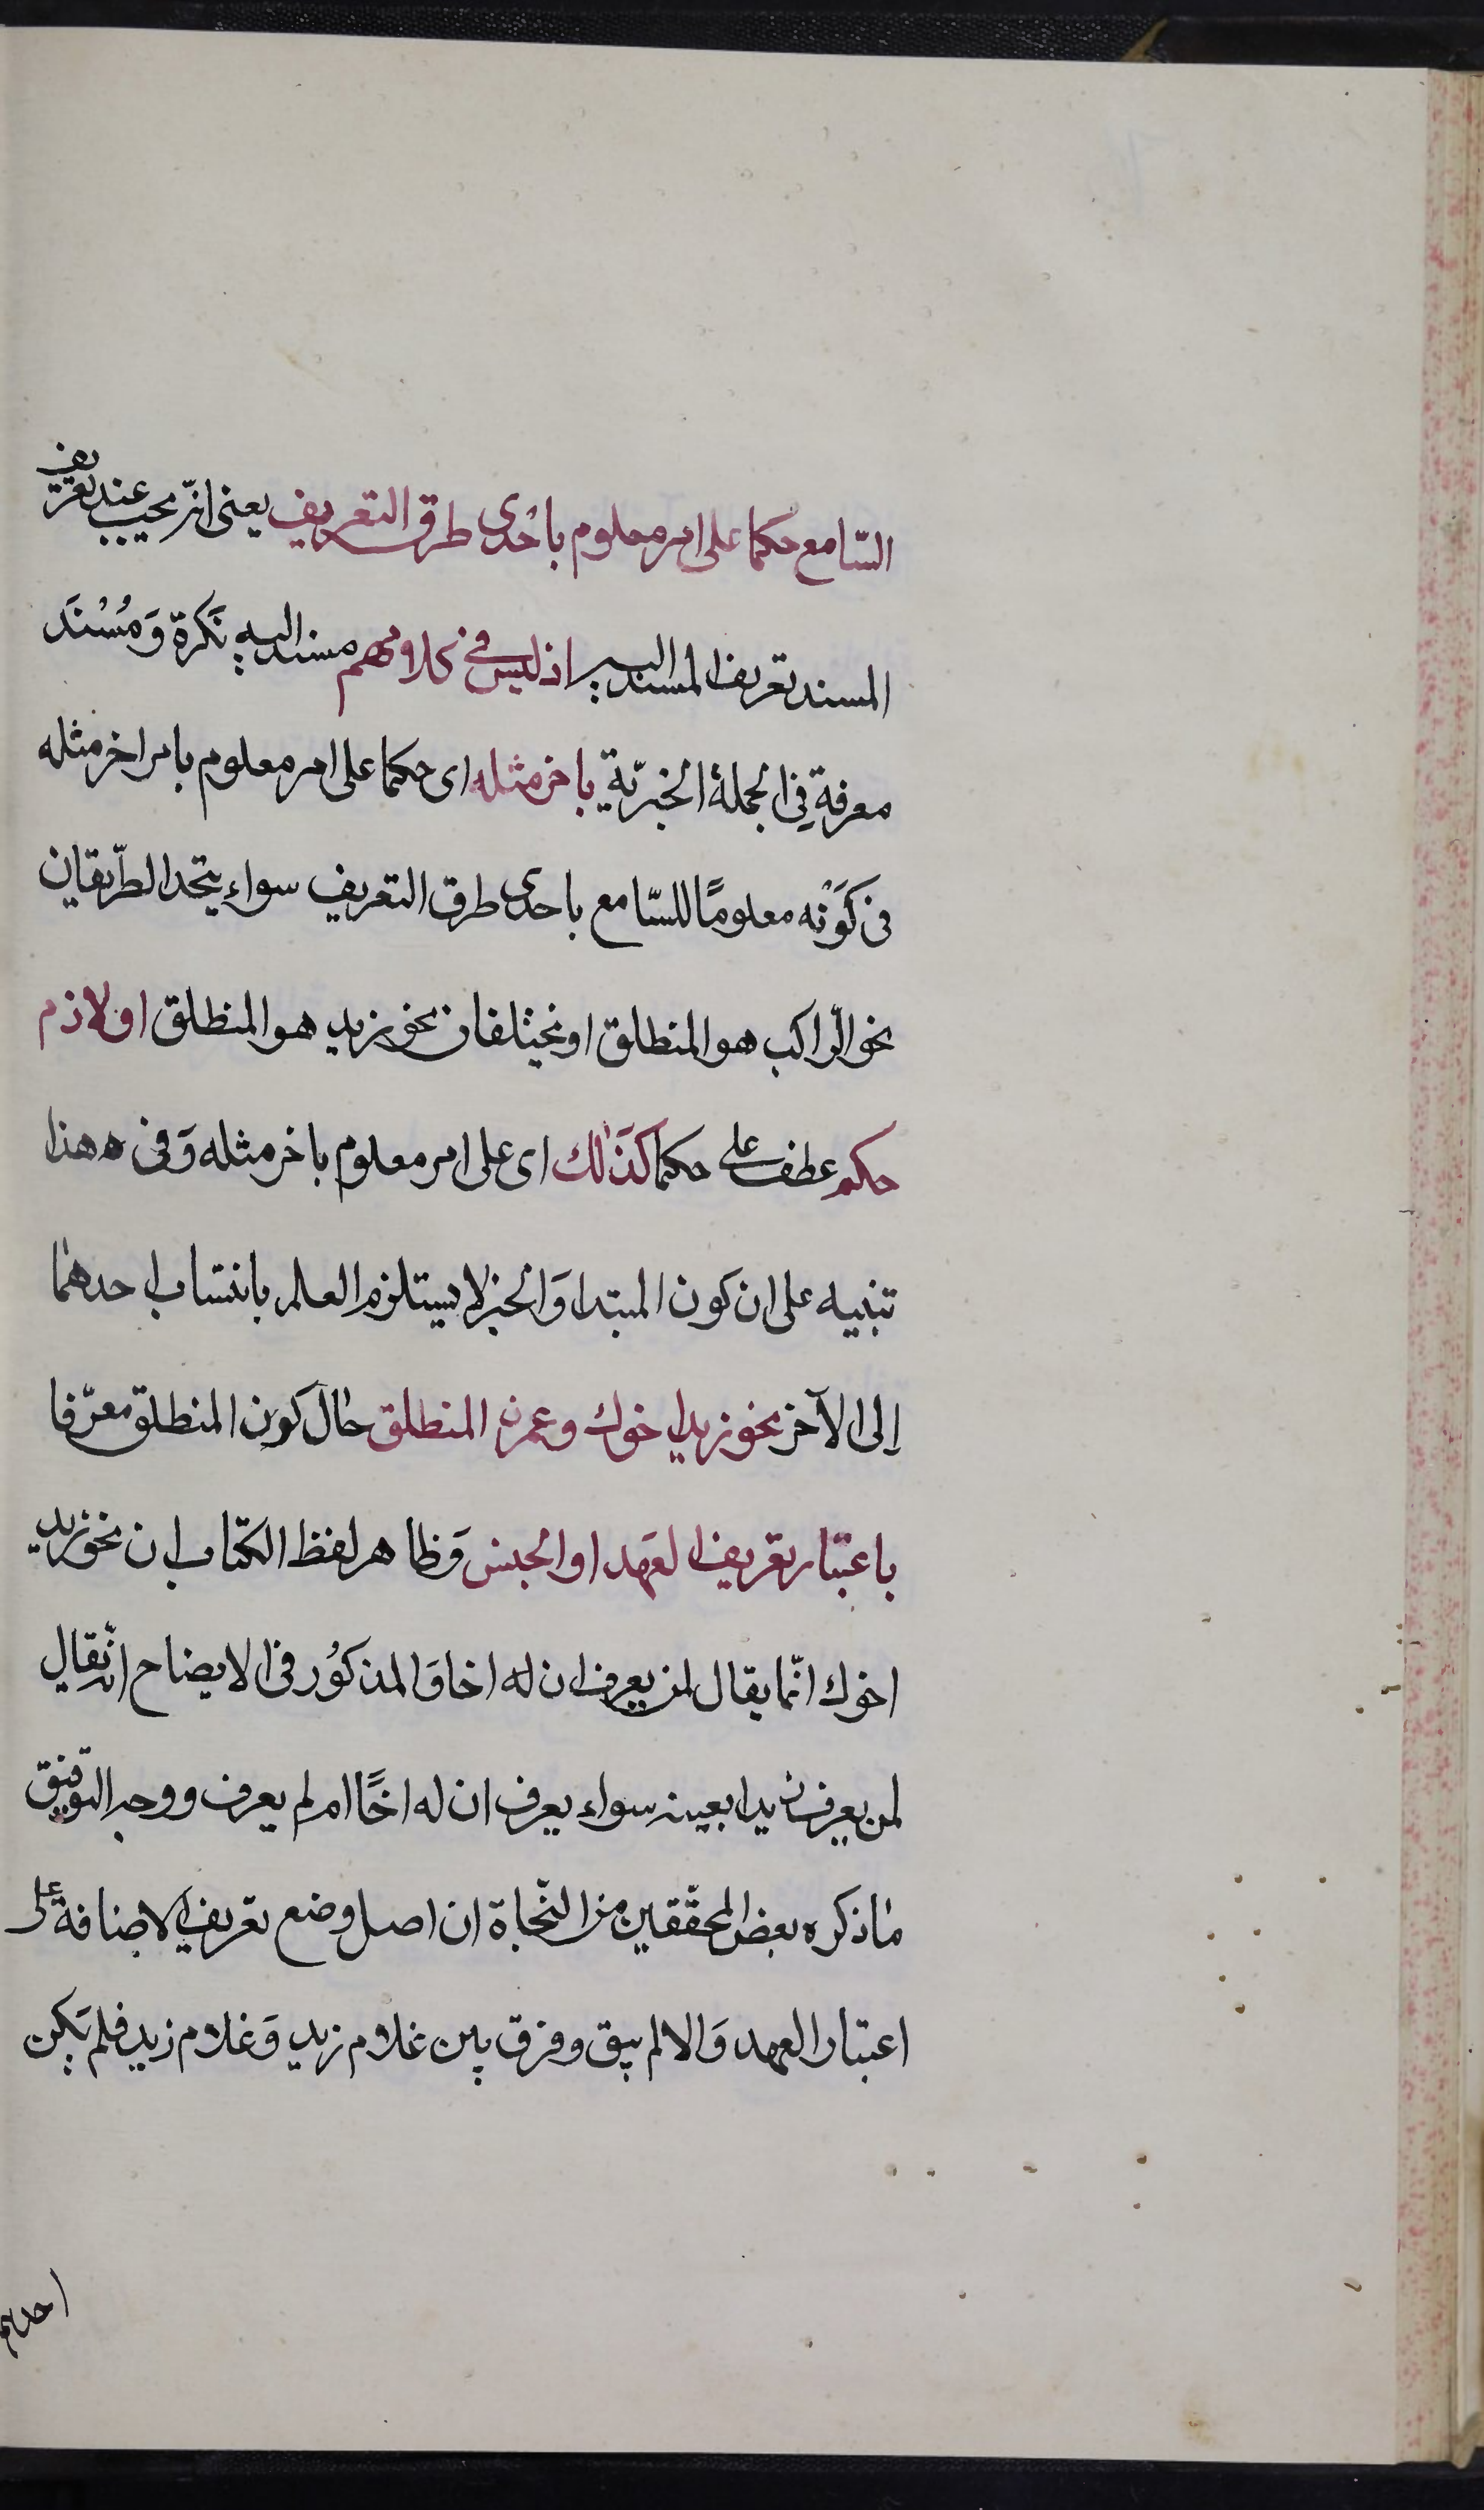 السّامع حكما على امر معلوم باحدى طرق التعريف يعنى انّه يجب عند تعريف
المسند تعريف المسند اليه اذ ليس فى كلامهم مسند اليه نَكرة وَمُسْنَد
معرفة فِى الجملة الخبريّة باخر مثله اى حكما على امر معلوم بامر اخر مثله
فى كَوْنه معلومًا للسّامع باحدى طرق التعريف سواء يتّحد الطّريقان
نحو الرّاكب هو المنطلق او يختلفان نحو زيد هو المنطلق او لازم
حكم عطف على حكما كَذٰلك اى على امر معلوم باخر مثله وَفى هذا
تنبيه على ان كون المبتدا وَالخبر لا يستلزم العلم بانتساب احدهما
اِلى الآخر نحو زيد اخوك وعمرو المنطلق حال كون المنطلق معرّفا
باعتبار تعريف العَهد او الجنس وَظاهر لفظ الكتاب ان نحو زيد
اخوك انّما يقال لمن يعرف ان له اخا وَالمذكُور فى الايضاح انّه يقال
لمن يعرف زيدا بعينه سواء يعرف ان له اخًا ام لم يعرف ووجه التوفيق
ما ذكره بعض المحقّقين من النّحاة ان اصل وضع تعريف الاضافة على
اعتبار العهد وَالا لم يبق وفرق بين غلام زيد وَغلام زيد فلم يَكن
احدهم